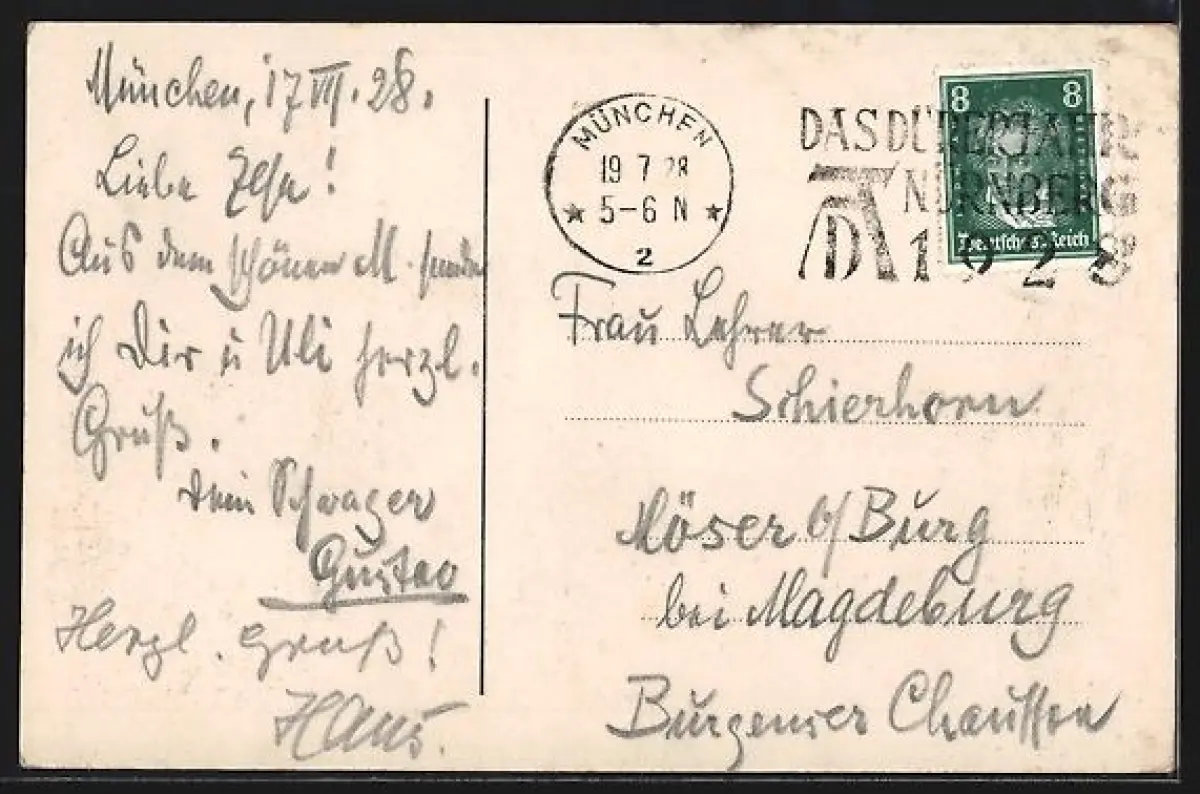 München, 17 VII. 28.
Liebe Ilse!
Aus dem schönen M. sende
ich Dir u Uli herzl.
Gruß.
Dein Schwager
Gustav
Herzl. Gruß!
Hans.
MÜNCHEN
19 7 28
5-6 N
2
DAS DÜRERJAHR
NÜRNBERG
AD 1928
8 8
Deutsches Reich
Frau Lehrer
Schierhorn
Möser b/Burg
bei Magdeburg
Chaussee